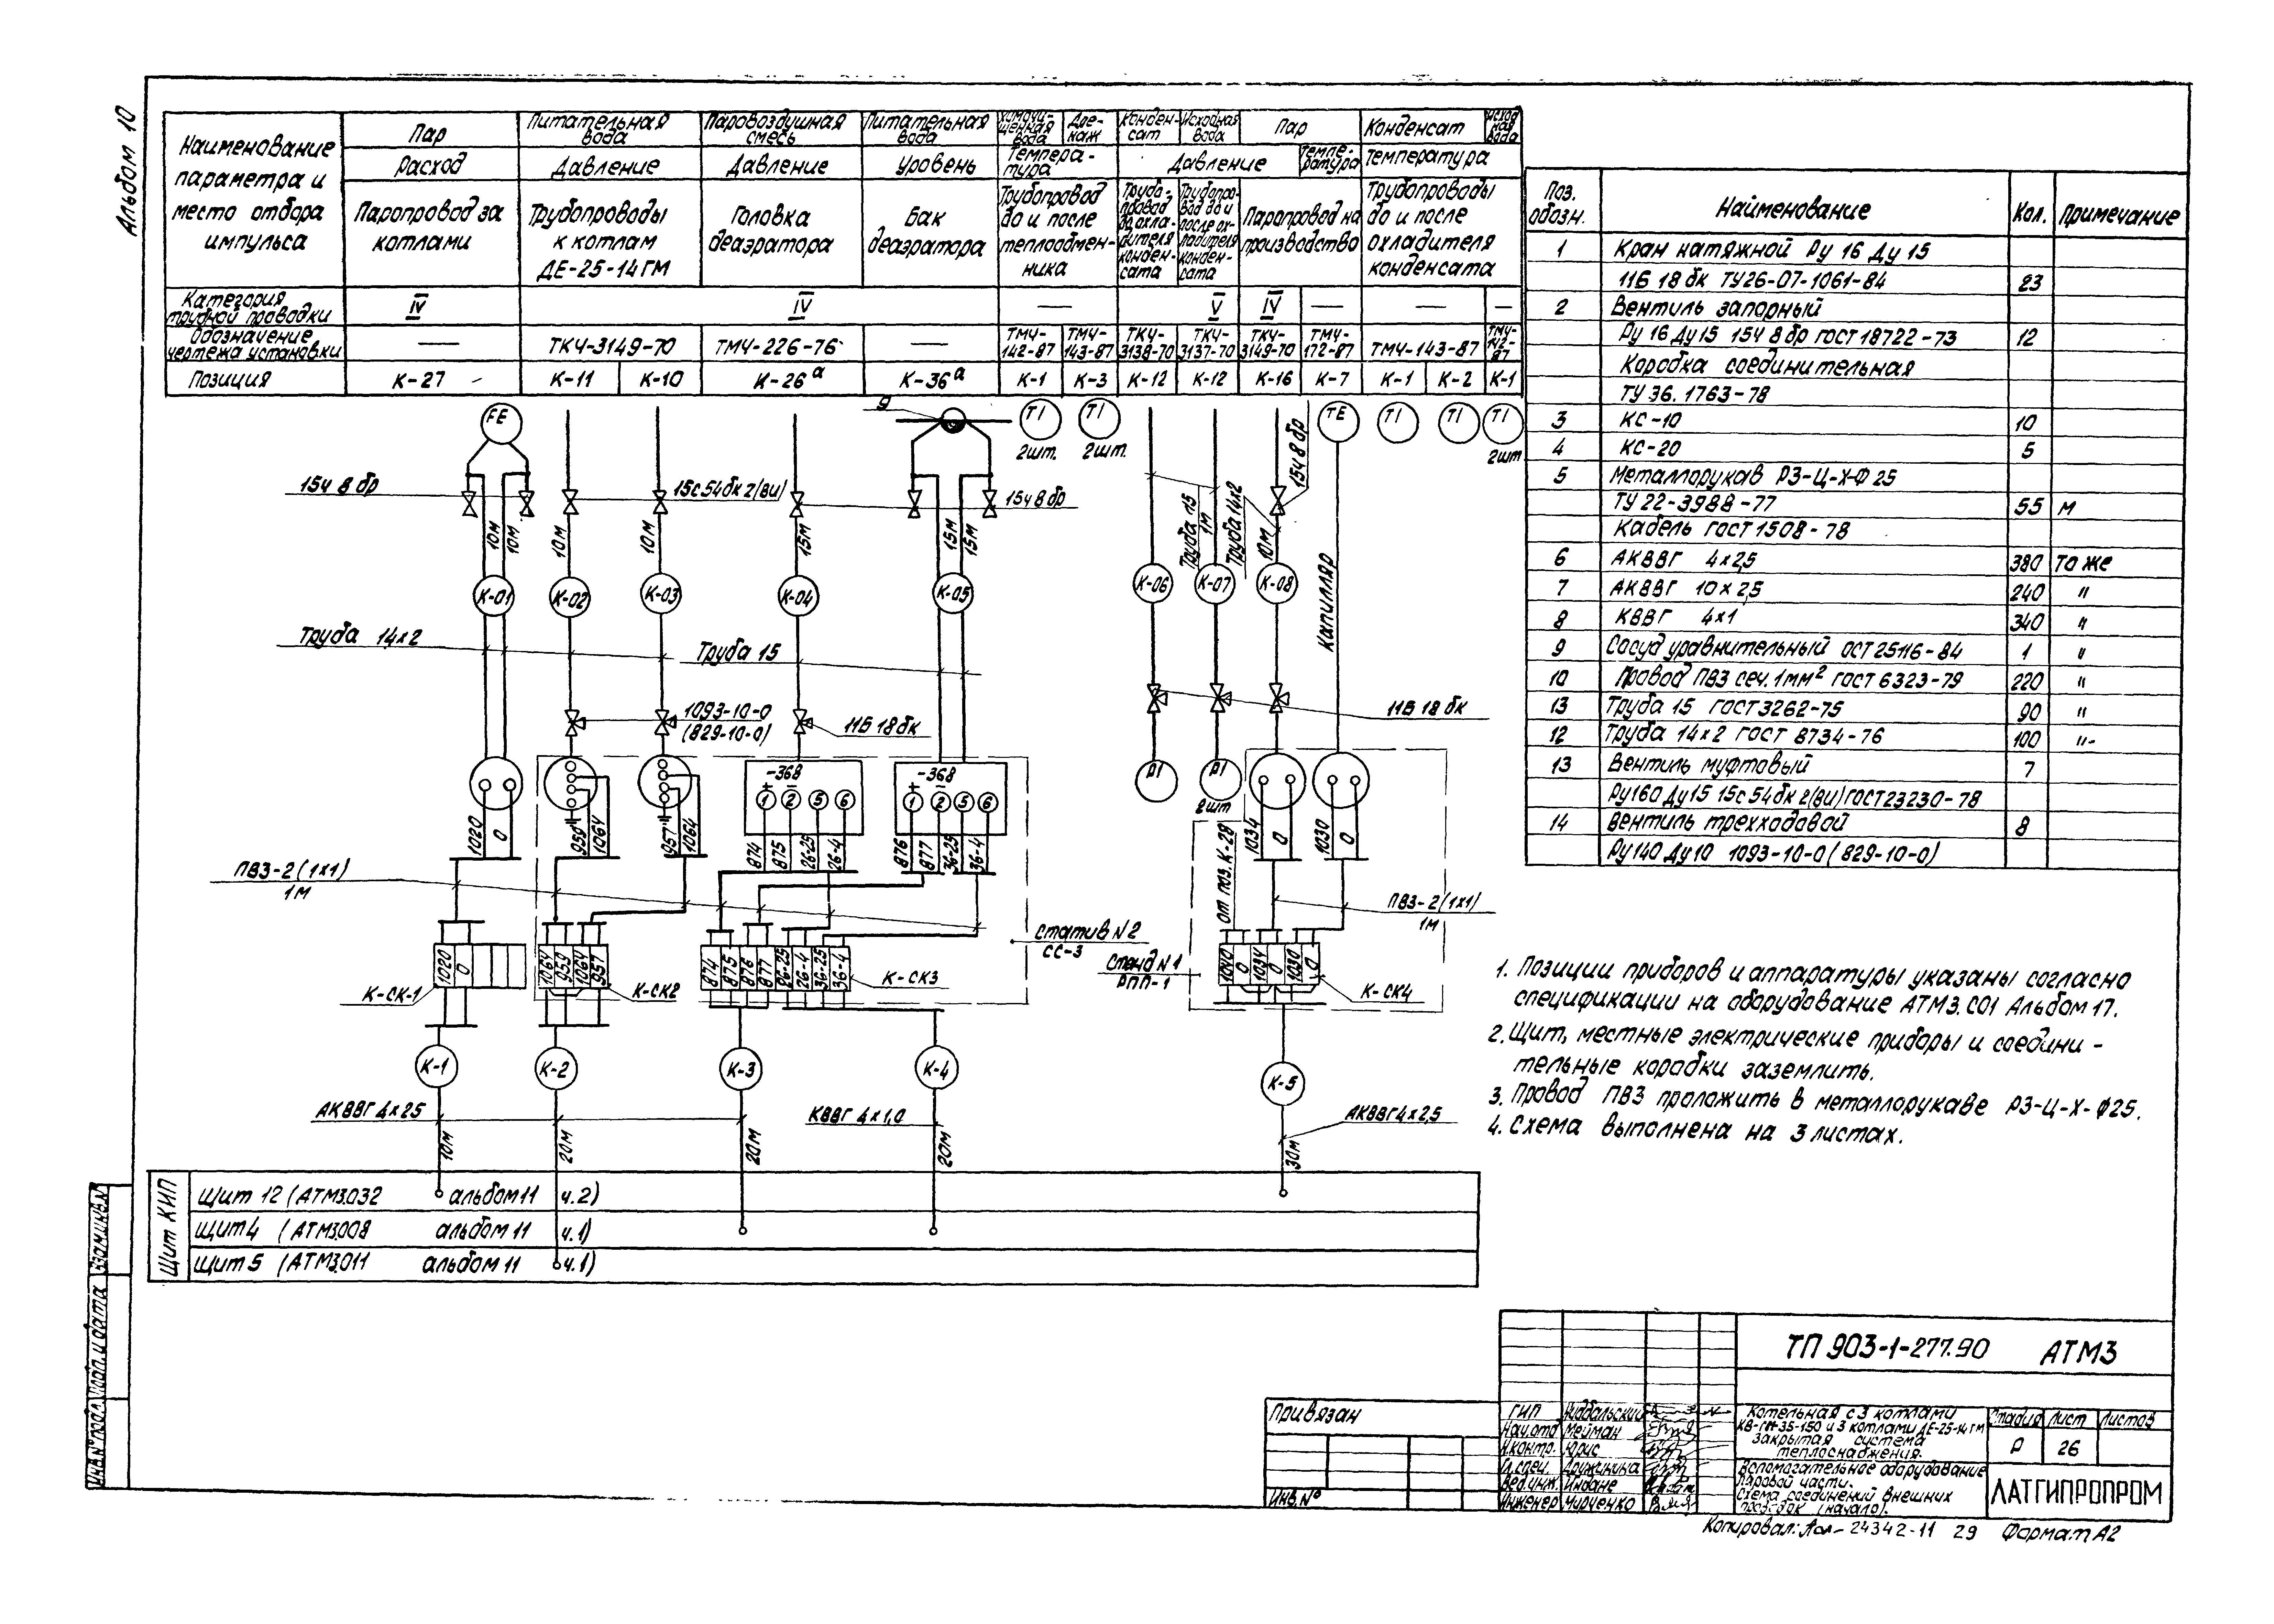 Альбом 10
Наименование параметра и место отбора импульса
Пар
Питательная вода
Паровоздушная смесь
Питательная вода
Химочищенная вода
Дренаж
Конденсат
Исходная вода
Пар
Конденсат
Исходная вода
Расход
Давление
Давление
Уровень
Температура
Давление
Температура
Температура
Паропровод за котлами
Трубопроводы к котлам ДЕ-25-14ГМ
Головка деаэратора
Бак деаэратора
Трубопровод до и после теплообменника
Трубопровод до охладителя конденсата
Трубопровод до и после охладителя конденсата
Паропровод на производство
Трубопроводы до и после охладителя конденсата
Категория трубной проводки
IV
IV
—
V
IV
—
—
—
Обозначение чертежа установки
—
ТКЧ-3149-70
ТМЧ-226-76
—
ТМЧ-142-87
ТМЧ-143-87
ТКЧ-3138-70
ТКЧ-3137-70
ТКЧ-3149-70
ТМЧ-172-87
ТМЧ-143-87
ТМЧ-142-87
Позиция
К-27
К-11
К-10
К-26а
К-36а
К-1
К-3
К-12
К-12
К-16
К-7
К-1
К-2
К-1
FE
9
TI
2шт.
TI
2шт.
TE
TI
TI
TI
2шт
15ч 8 бр
15с54бк2(ВИ)
15ч 8 бр
15ч 8 бр
10м
10м
10м
10м
15м
15м
15м
Труба 15
1м
Труба 14х2
10м
Капилляр
К-01
К-02
К-03
К-04
К-05
К-06
К-07
К-08
Труба 14х2
Труба 15
1093-10-0
(829-10-0)
11Б 18бк
11Б 18 бк
-36В
+ −
1 2 5 6
-36В
+ −
1 2 5 6
PI
PI
2шт
1020 0
959 1064
957 1064
874 875 26-25 26-4
876 877 36-25 36-4
от поз. К-28
1034 0
1030 0
ПВ3-2(1х1)
1м
ПВ3-2(1х1)
1м
Статив N2
СС-3
Стенд N1
РПП-1
1020 0
К-СК-1
1064 959 1064 957
К-СК2
874 875 876 877 26-25 26-4 36-25 36-4
К-СК3
1040 0 1034 0 1030 0
К-СК4
К-1
К-2
К-3
К-4
К-5
АКВВГ 4х25
КВВГ 4х1,0
АКВВГ4х2,5
10м
20м
20м
20м
30м
Щит КИП
Щит 12 (АТМ3.032 альбом 11 ч.2)
Щит 4 (АТМ3.008 альбом 11 ч.1)
Щит 5 (АТМ3.011 альбом 11 ч.1)
Поз. обозн.
Наименование
Кол.
Примечание
1 Кран натяжной Ру 16 Ду 15
11Б 18 бк ТУ26-07-1061-84 23
2 Вентиль запорный
Ру 16 Ду15 15ч 8 бр ГОСТ 18722-73 12
Коробка соединительная
ТУ 36. 1763-78
3 КС-10 10
4 КС-20 5
5 Металлорукав РЗ-Ц-Х-Ф 25
ТУ 22-3988-77 55 м
Кабель ГОСТ 1508-78
6 АКВВГ 4х2,5 380 то же
7 АКВВГ 10х2,5 240 "
8 КВВГ 4х1 340 "
9 Сосуд уравнительный ОСТ 25116-84 1 "
10 Провод ПВ3 сеч. 1мм² ГОСТ 6323-79 220 "
13 Труба 15 ГОСТ3262-75 90 "
12 Труба 14х2 ГОСТ 8734-76 100 "-
13 Вентиль муфтовый 7
Ру160 Ду15 15с54бк2(ВИ) ГОСТ23230-78
14 Вентиль трехходовой 8
Ру140 Ду10 1093-10-0 (829-10-0)
1. Позиции приборов и аппаратуры указаны согласно
спецификации на оборудование АТМ3.С01 Альбом 17.
2. Щит, местные электрические приборы и соедини-
тельные коробки заземлить.
3. Провод ПВ3 проложить в металлорукаве РЗ-Ц-Х-Ф25.
4. Схема выполнена на 3 листах.
Взам.инв.N
Подп. и дата
Инв.N°подл.
Привязан
Инв.N°
ТП 903-1-277.90 АТМ3
ГИП
Нач.отд Мейман
Н.контр. Юрис
Гл.спец. Дружинина
Вед.инж. Индане
Инженер Мирченко
Котельная с 3 котлами
КВ-ГМ-35-150 и 3 котлами ДЕ-25-14ГМ
закрытая система
теплоснабжения.
Стадия
Лист
Листов
Р
26
Вспомогательное оборудование
паровой части.
Схема соединений внешних
проводок (начало).
ЛАТГИПРОПРОМ
Копировал: 24342-11 29 Формат А2